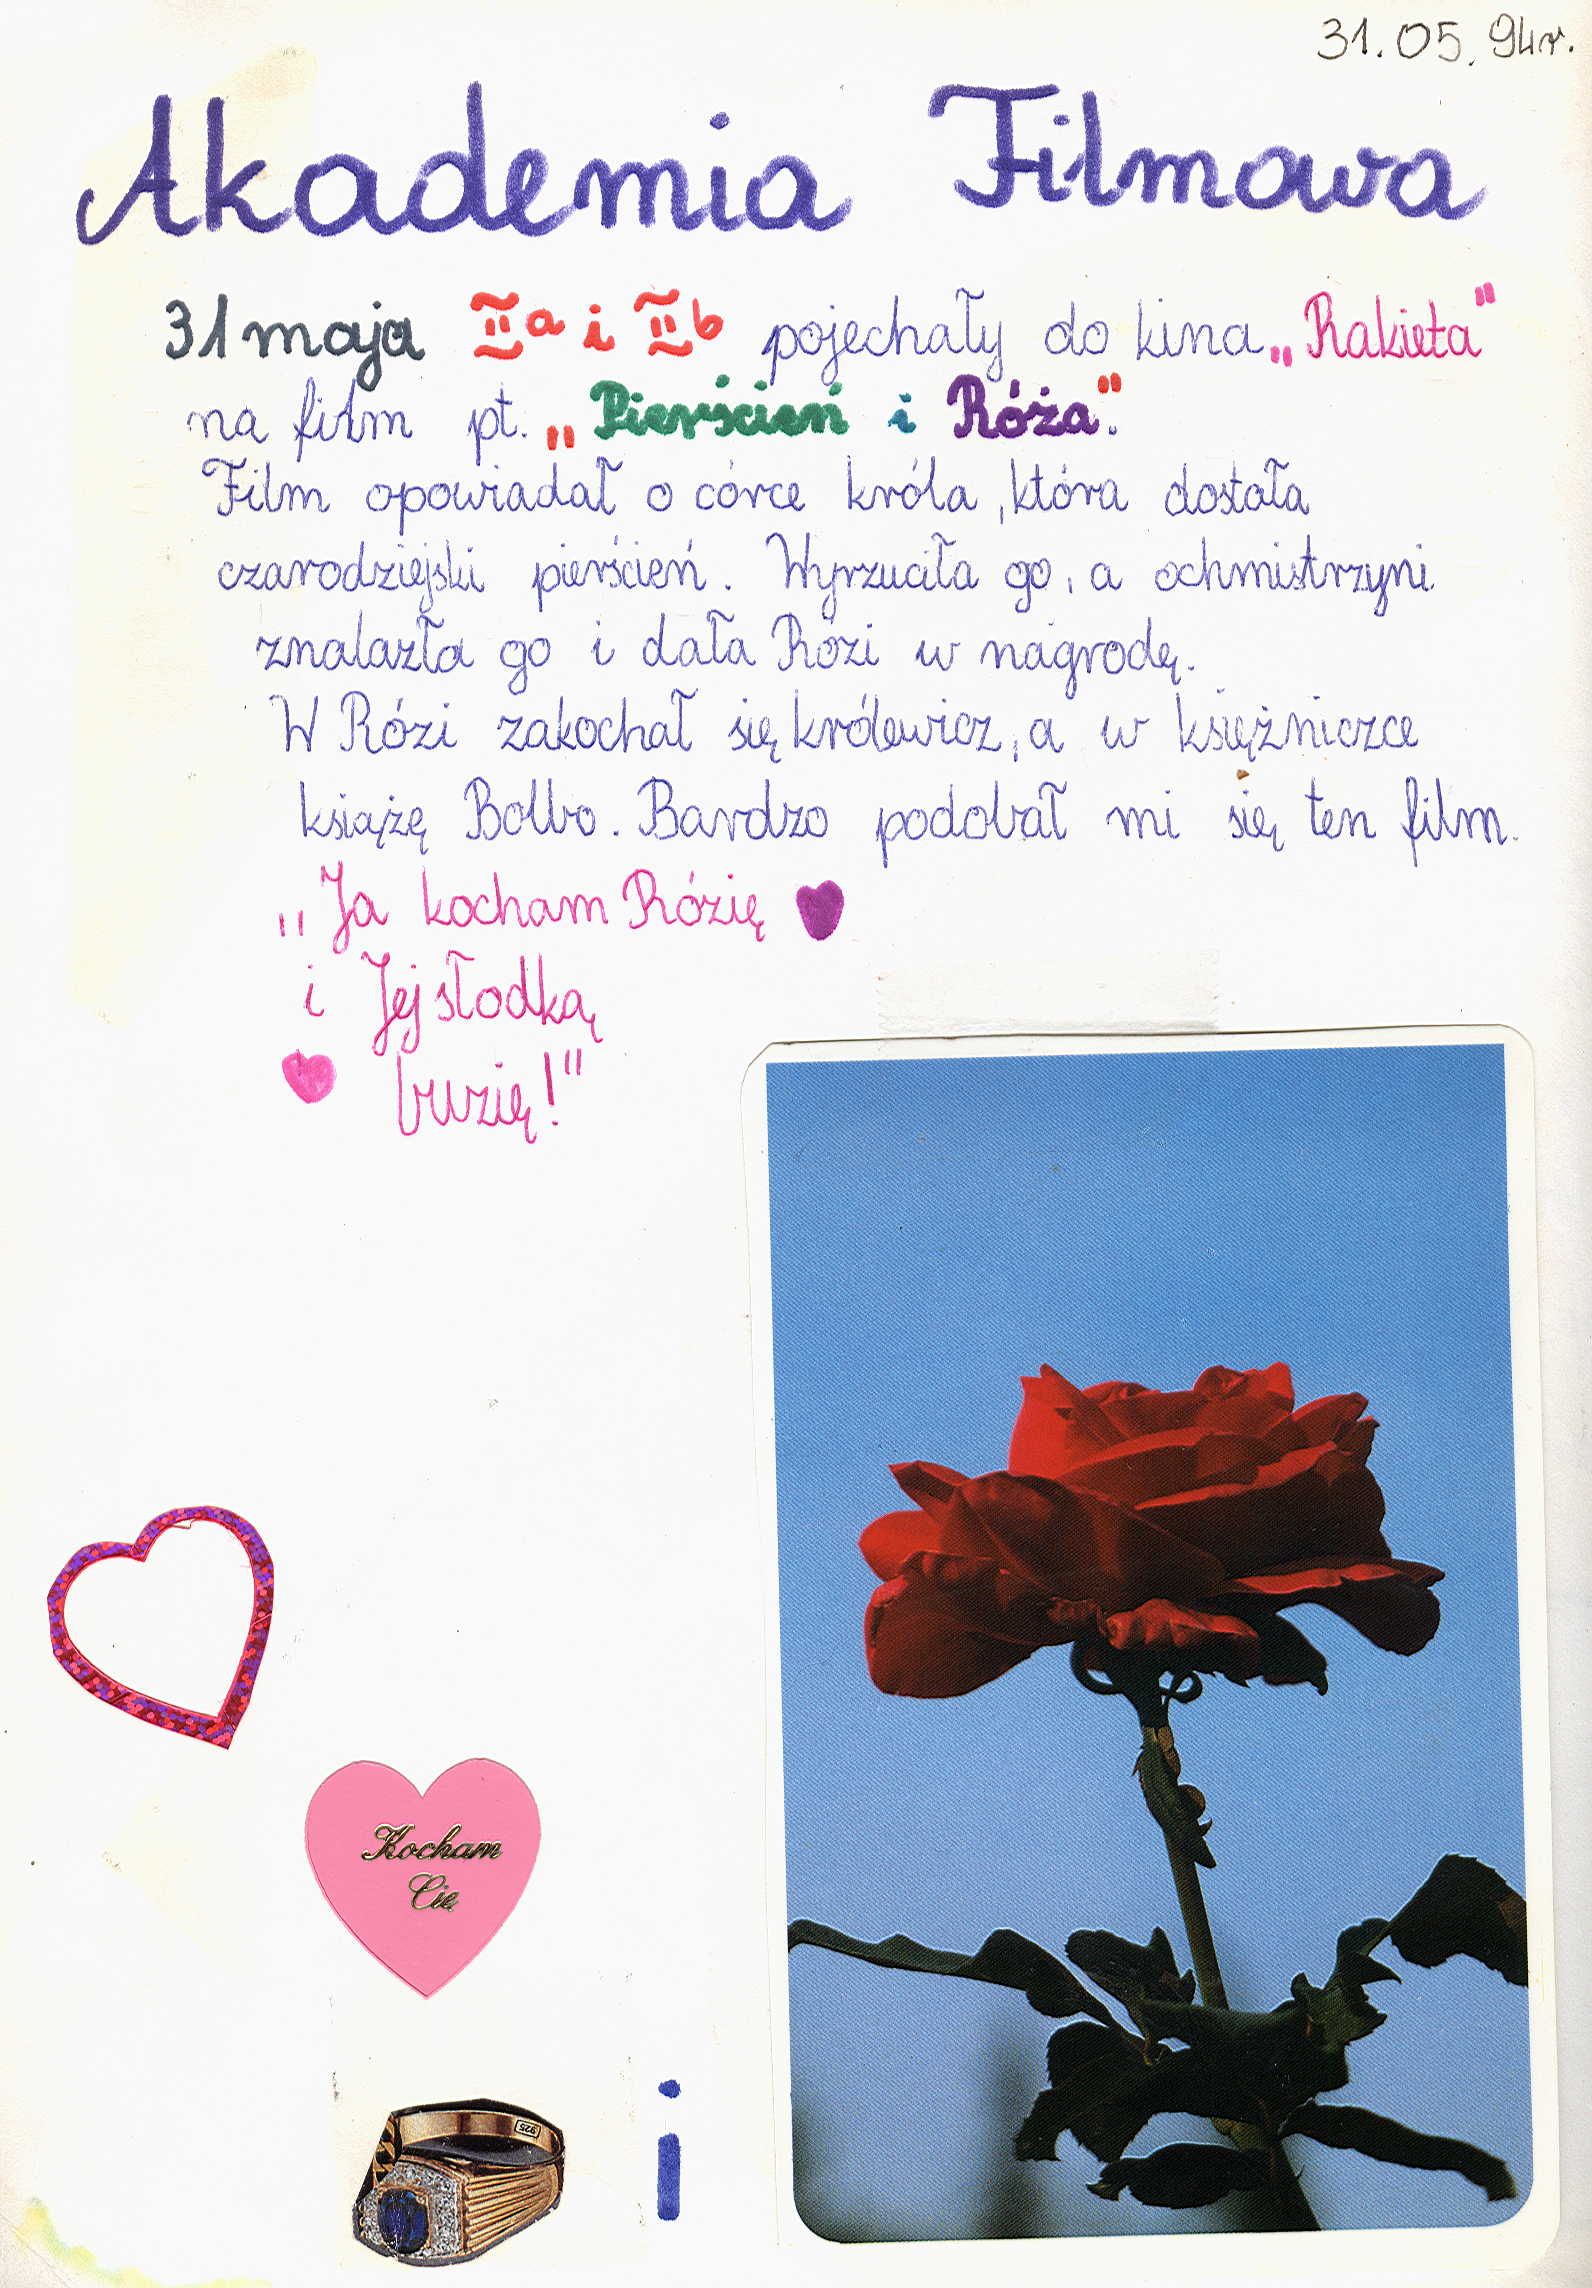 31.05.94r.
Akademia Filmowa
31 maja IIa i IIb pojechały do kina „Rakieta"
na film pt. „Pierścień i Róża".
Film opowiadał o córce króla, która dostała
czarodziejski pierścień. Wyrzuciła go, a ochmistrzyni
znalazła go i dała Rózi w nagrodę.
W Rózi zakochał się królewicz, a w księżniczce
książę Bolbo. Bardzo podobał mi się ten film.
„Ja kocham Rózię
i Jej słodką
buzię!"
Kocham
Cię
925
i